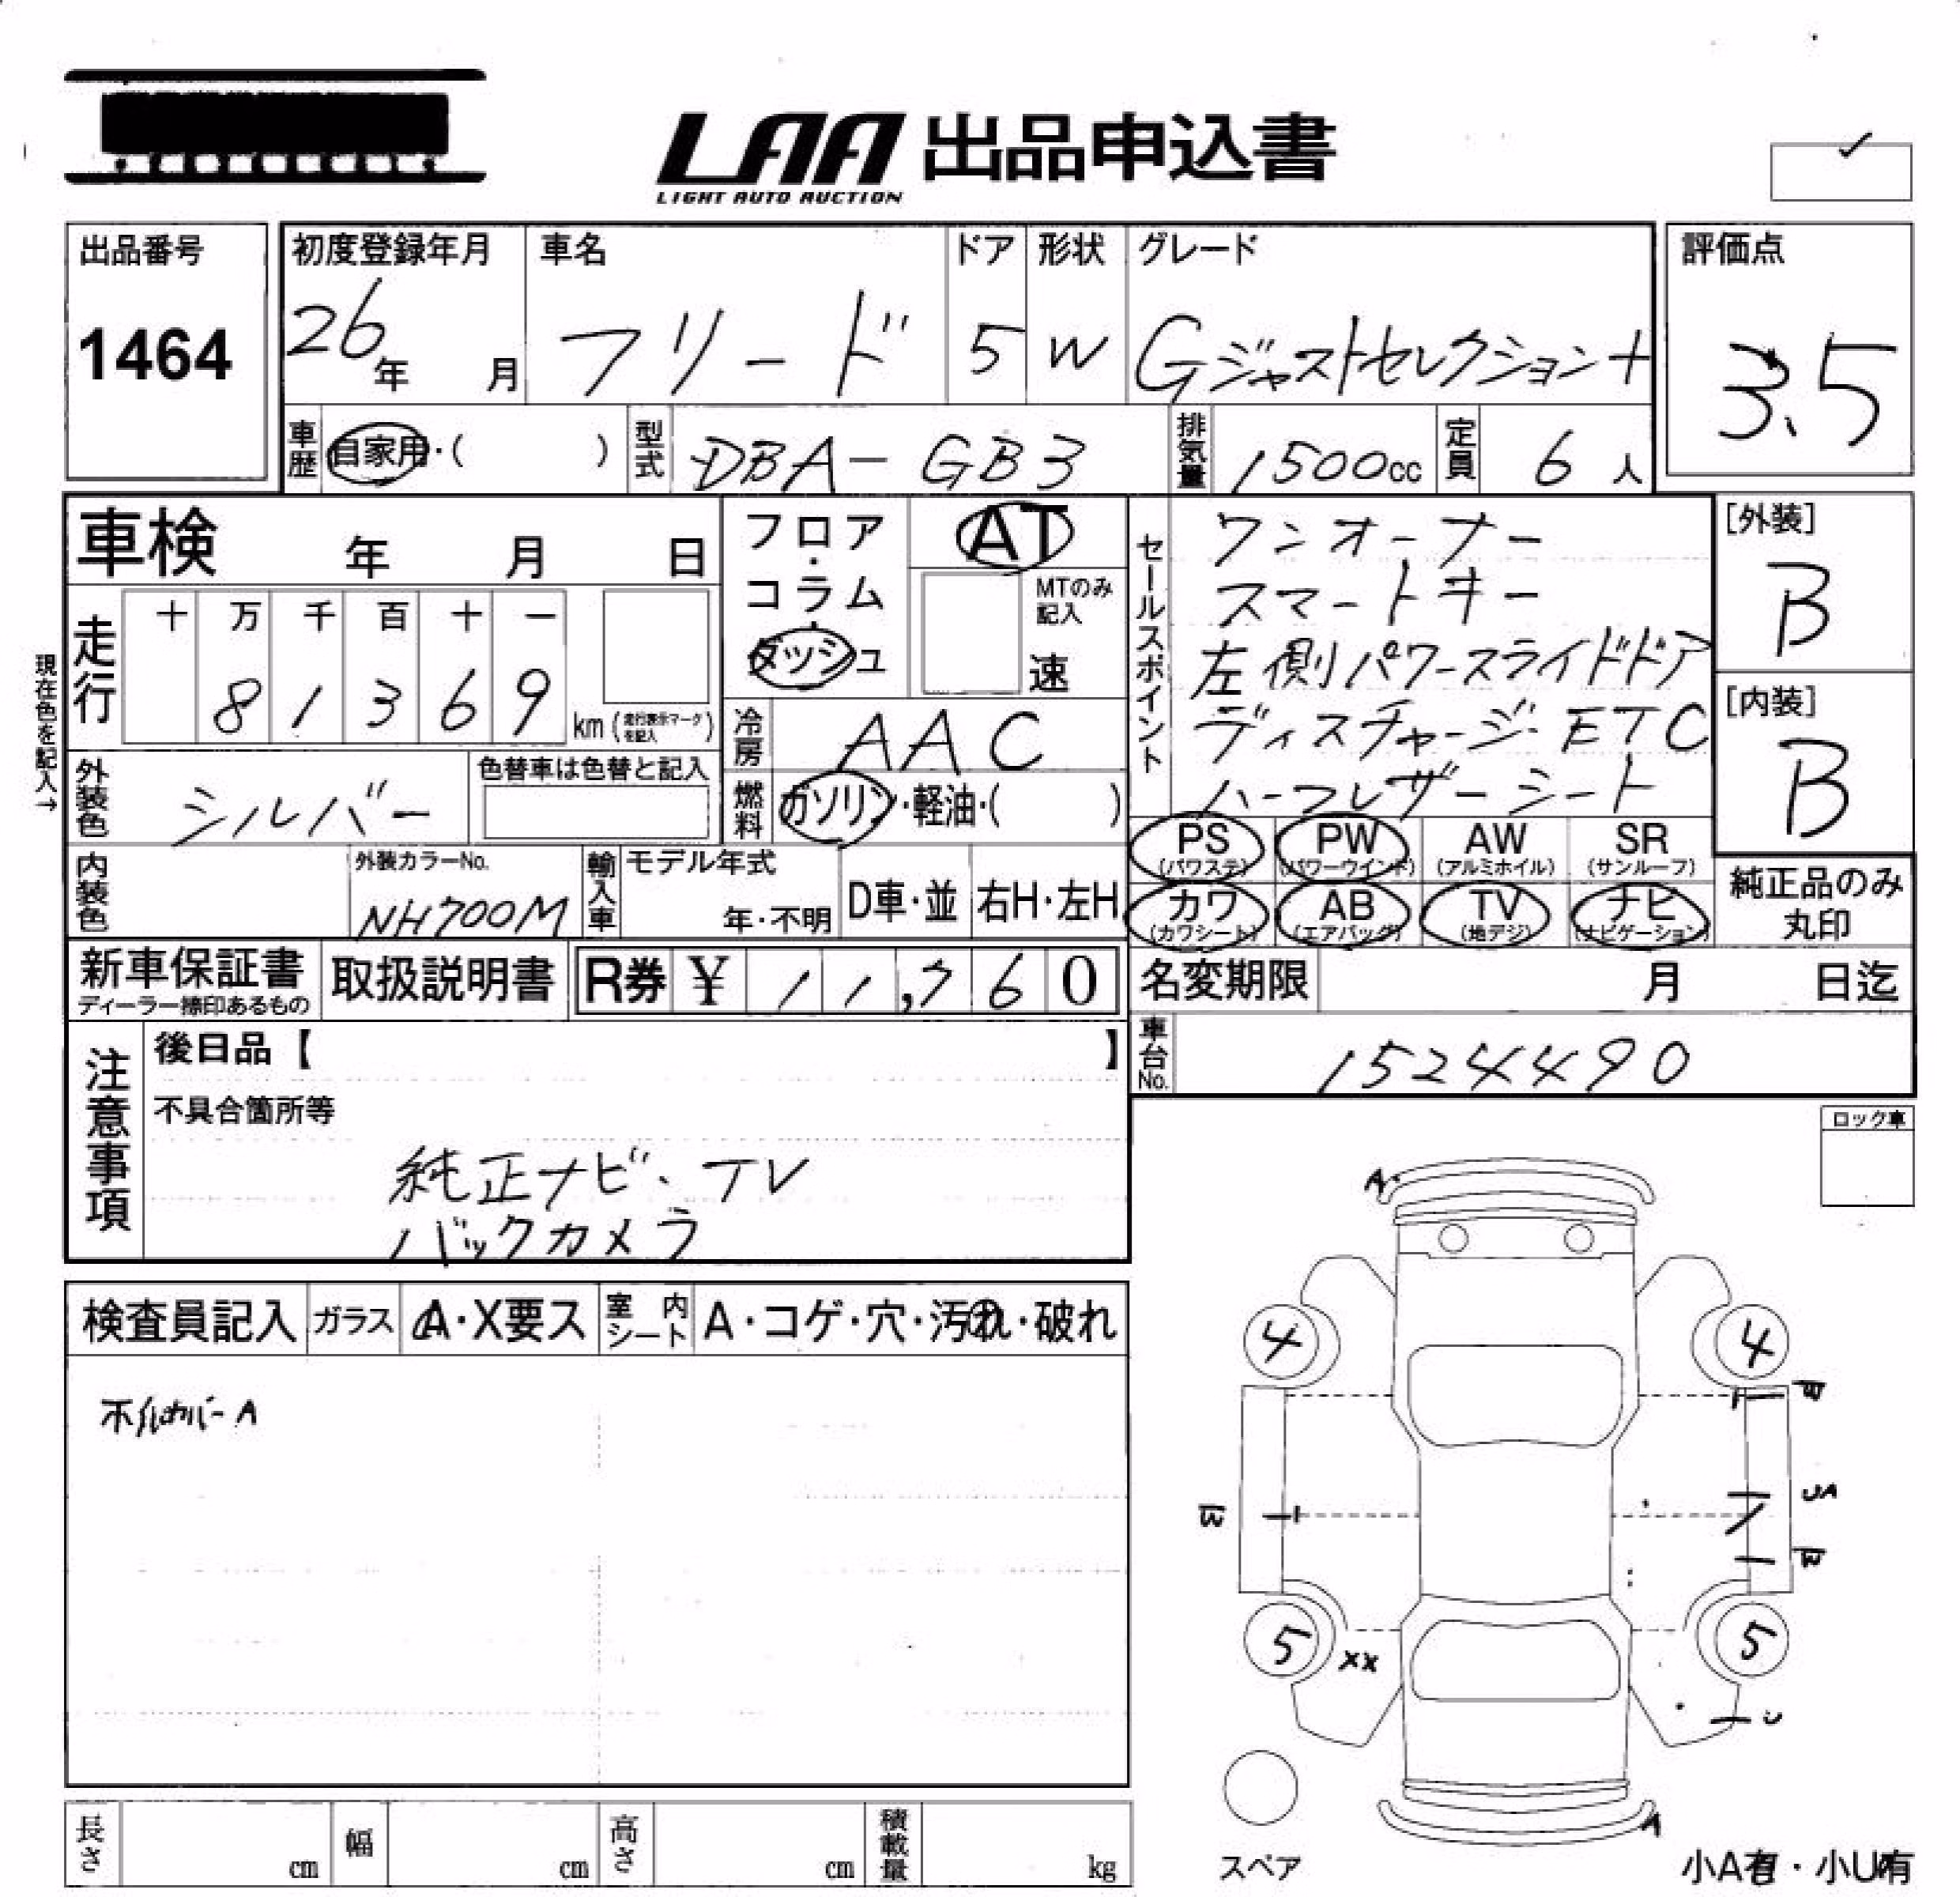 LAA 出品申込書
LIGHT AUTO AUCTION
出品番号
1464
初度登録年月
26年 月
車名
フリード
ドア
5
形状
W
グレード
Gジャストセレクション+
評価点
3.5
車歴 自家用・( )
型式 DBA-GB3
排気量 1500cc
定員 6人
車検 年 月 日
走行
十 万 千 百 十 一
8 1 3 6 9
km (走行表示マークを記入)
現在色を記入→
フロア・コラム・ダッシュ
AT
MTのみ記入
速
冷房 AAC
燃料 ガソリン・軽油・( )
セールスポイント
ワンオーナー
スマートキー
左側パワースライドドア
ディスチャージ・ETC
ハーフレザーシート
[外装]
B
[内装]
B
外装色 シルバー
色替車は色替と記入
内装色
外装カラーNo.
NH700M
輸入車
モデル年式
年・不明
D車・並
右H・左H
PS (パワステ)
PW (パワーウインド)
AW (アルミホイル)
SR (サンルーフ)
カワ (カワシート)
AB (エアバッグ)
TV (地デジ)
ナビ (ナビゲーション)
純正品のみ丸印
新車保証書
ディーラー捺印あるもの
取扱説明書
R券 ¥ 11,760
名変期限 月 日迄
車台No. 1524490
注意事項
後日品【 】
不具合箇所等
純正ナビ、TV
バックカメラ
ロック車
検査員記入
ガラス A・X要ス
室内シート A・コゲ・穴・汚れ・破れ
カバーA
A
4 4
W
W
UA
W
5 5
XX
U
A
スペア
小A有・小U有
長さ cm
幅 cm
高さ cm
積載量 kg